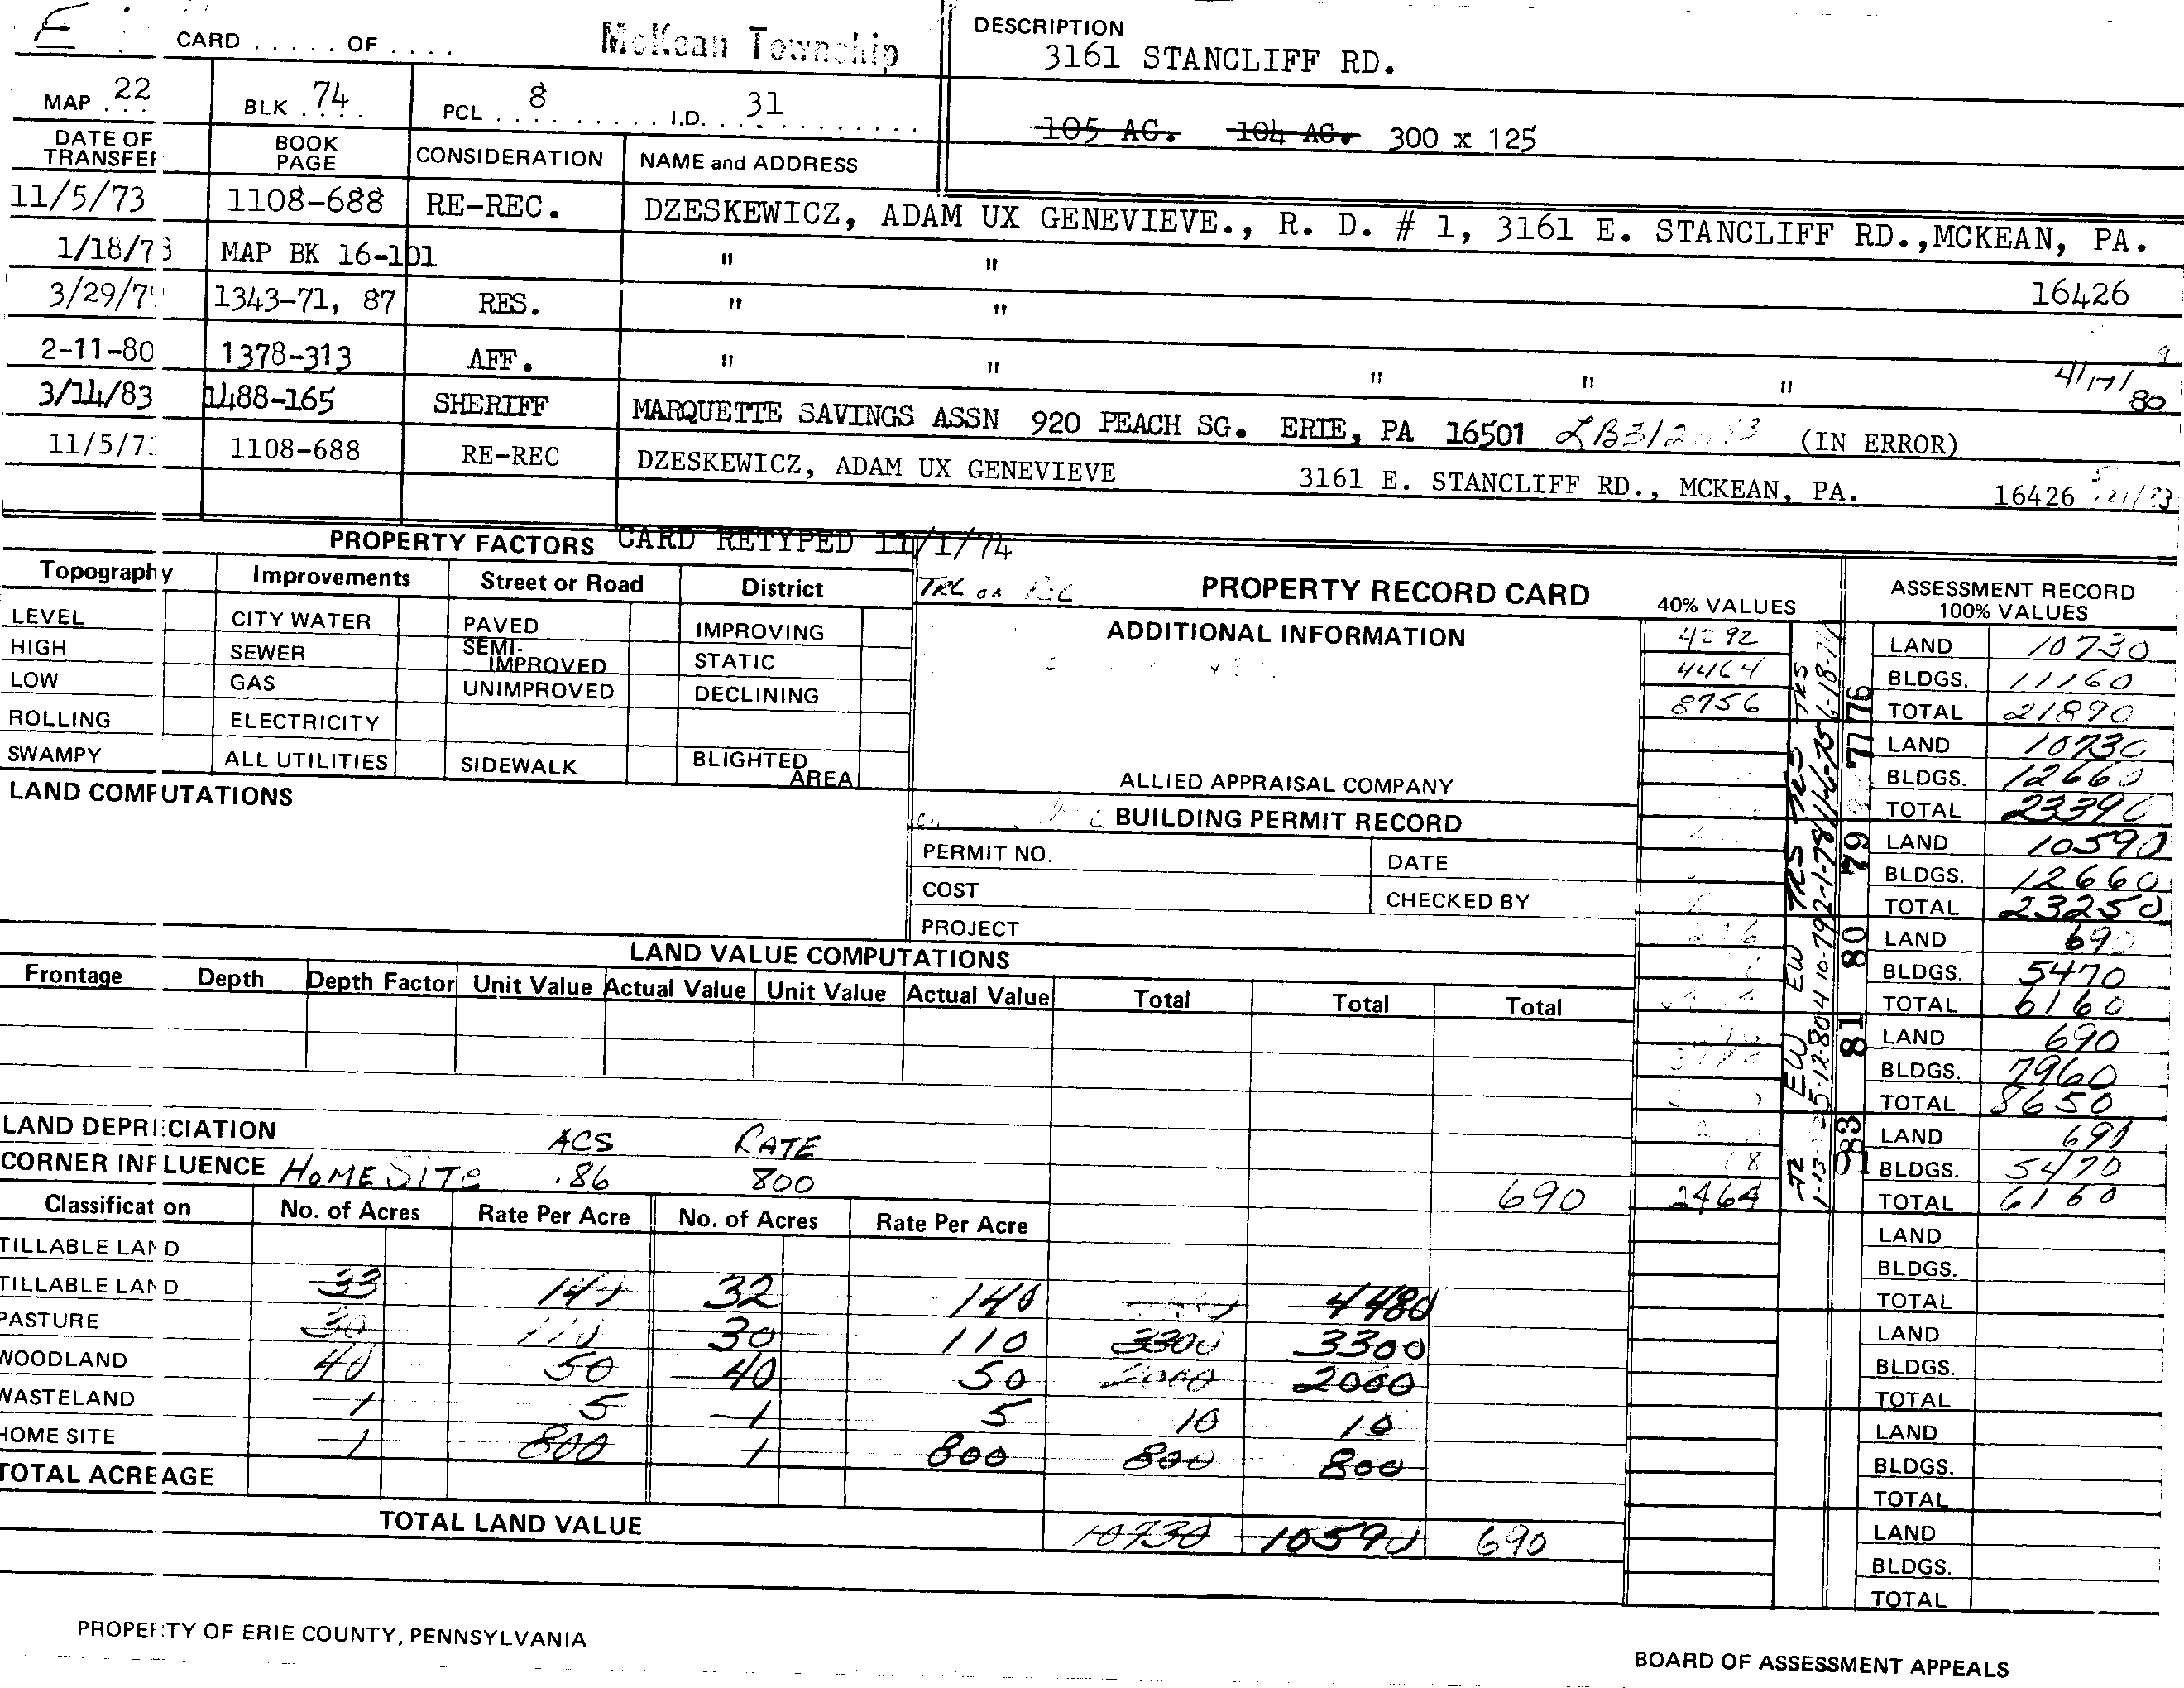 E
CARD . . . . . OF . . . .
McKean Township
DESCRIPTION
3161 STANCLIFF RD.
MAP . . . 22 BLK . . . . 74 PCL . . . . . . . . . . 8 I.D. . . . . . . . . . . . 31
105 AC. 104 AC. 300 x 125
DATE OF TRANSFER BOOK PAGE CONSIDERATION NAME and ADDRESS
11/5/73 1108-688 RE-REC. DZESKEWICZ, ADAM UX GENEVIEVE., R. D. # 1, 3161 E. STANCLIFF RD.,MCKEAN, PA.
1/18/78 MAP BK 16-101 " "
16426
3/29/79 1343-71, 87 RES. " "
2-11-80 1378-313 AFF. " " " " " 4/17/80
3/14/83 1488-165 SHERIFF MARQUETTE SAVINGS ASSN 920 PEACH SG. ERIE, PA 16501 (IN ERROR)
11/5/73 1108-688 RE-REC DZESKEWICZ, ADAM UX GENEVIEVE 3161 E. STANCLIFF RD., MCKEAN, PA. 16426
PROPERTY FACTORS CARD RETYPED 11/1/74
Topography Improvements Street or Road District
LEVEL CITY WATER PAVED IMPROVING
HIGH SEWER SEMI-IMPROVED STATIC
LOW GAS UNIMPROVED DECLINING
ROLLING ELECTRICITY
SWAMPY ALL UTILITIES SIDEWALK BLIGHTED AREA
PROPERTY RECORD CARD
ADDITIONAL INFORMATION
ALLIED APPRAISAL COMPANY
LAND COMPUTATIONS
BUILDING PERMIT RECORD
PERMIT NO. DATE
COST CHECKED BY
PROJECT
40% VALUES
4292
4464
8756
2464
ASSESSMENT RECORD
100% VALUES
76 LAND 10730
BLDGS. 11160
TOTAL 21890
77 LAND 10730
BLDGS. 12660
TOTAL 23390
79 LAND 10590
BLDGS. 12660
TOTAL 23250
80 LAND 690
BLDGS. 5470
TOTAL 6160
81 LAND 690
BLDGS. 7960
TOTAL 8650
1983 LAND 690
BLDGS. 5470
TOTAL 6160
LAND
BLDGS.
TOTAL
LAND
BLDGS.
TOTAL
LAND
BLDGS.
TOTAL
LAND
BLDGS.
TOTAL
LAND VALUE COMPUTATIONS
Frontage Depth Depth Factor Unit Value Actual Value Unit Value Actual Value Total Total Total
LAND DEPRECIATION ACS RATE
CORNER INFLUENCE HOMESITE .86 800 690
Classification No. of Acres Rate Per Acre No. of Acres Rate Per Acre
TILLABLE LAND
TILLABLE LAND 33 140 32 140 4480
PASTURE 30 110 30 110 3300 3300
WOODLAND 40 50 40 50 2000 2000
WASTELAND 1 5 1 5 10 10
HOME SITE 1 800 1 800 800 800
TOTAL ACREAGE
TOTAL LAND VALUE 10730 10590 690
PROPERTY OF ERIE COUNTY, PENNSYLVANIA
BOARD OF ASSESSMENT APPEALS